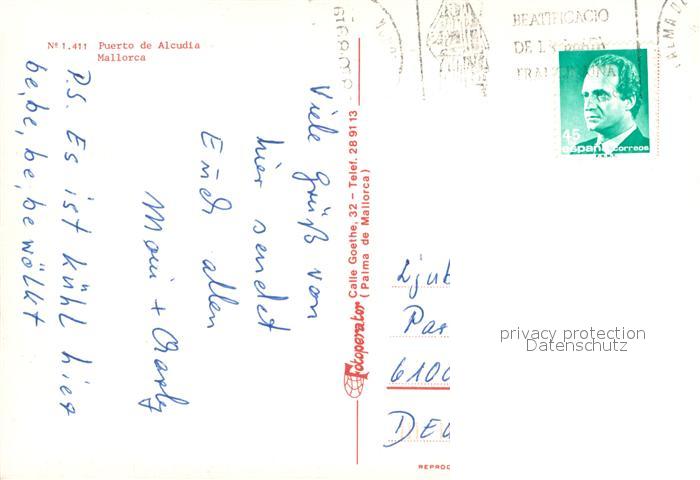 Nº 1.411 Puerto de Alcudia
Mallorca
Viele Grüß von
hier sendet
Euch allen
Moni + Charly
P.S. Es ist kühl hier
be, be, be, bewölkt
Fotoperator Calle Goethe, 32 - Telef. 28 91 13
(Palma de Mallorca)
BEATIFICACIO
DE LA
45
españa correos
Ljub
Pas
6100
DEU
privacy protection
Datenschutz
REPROD